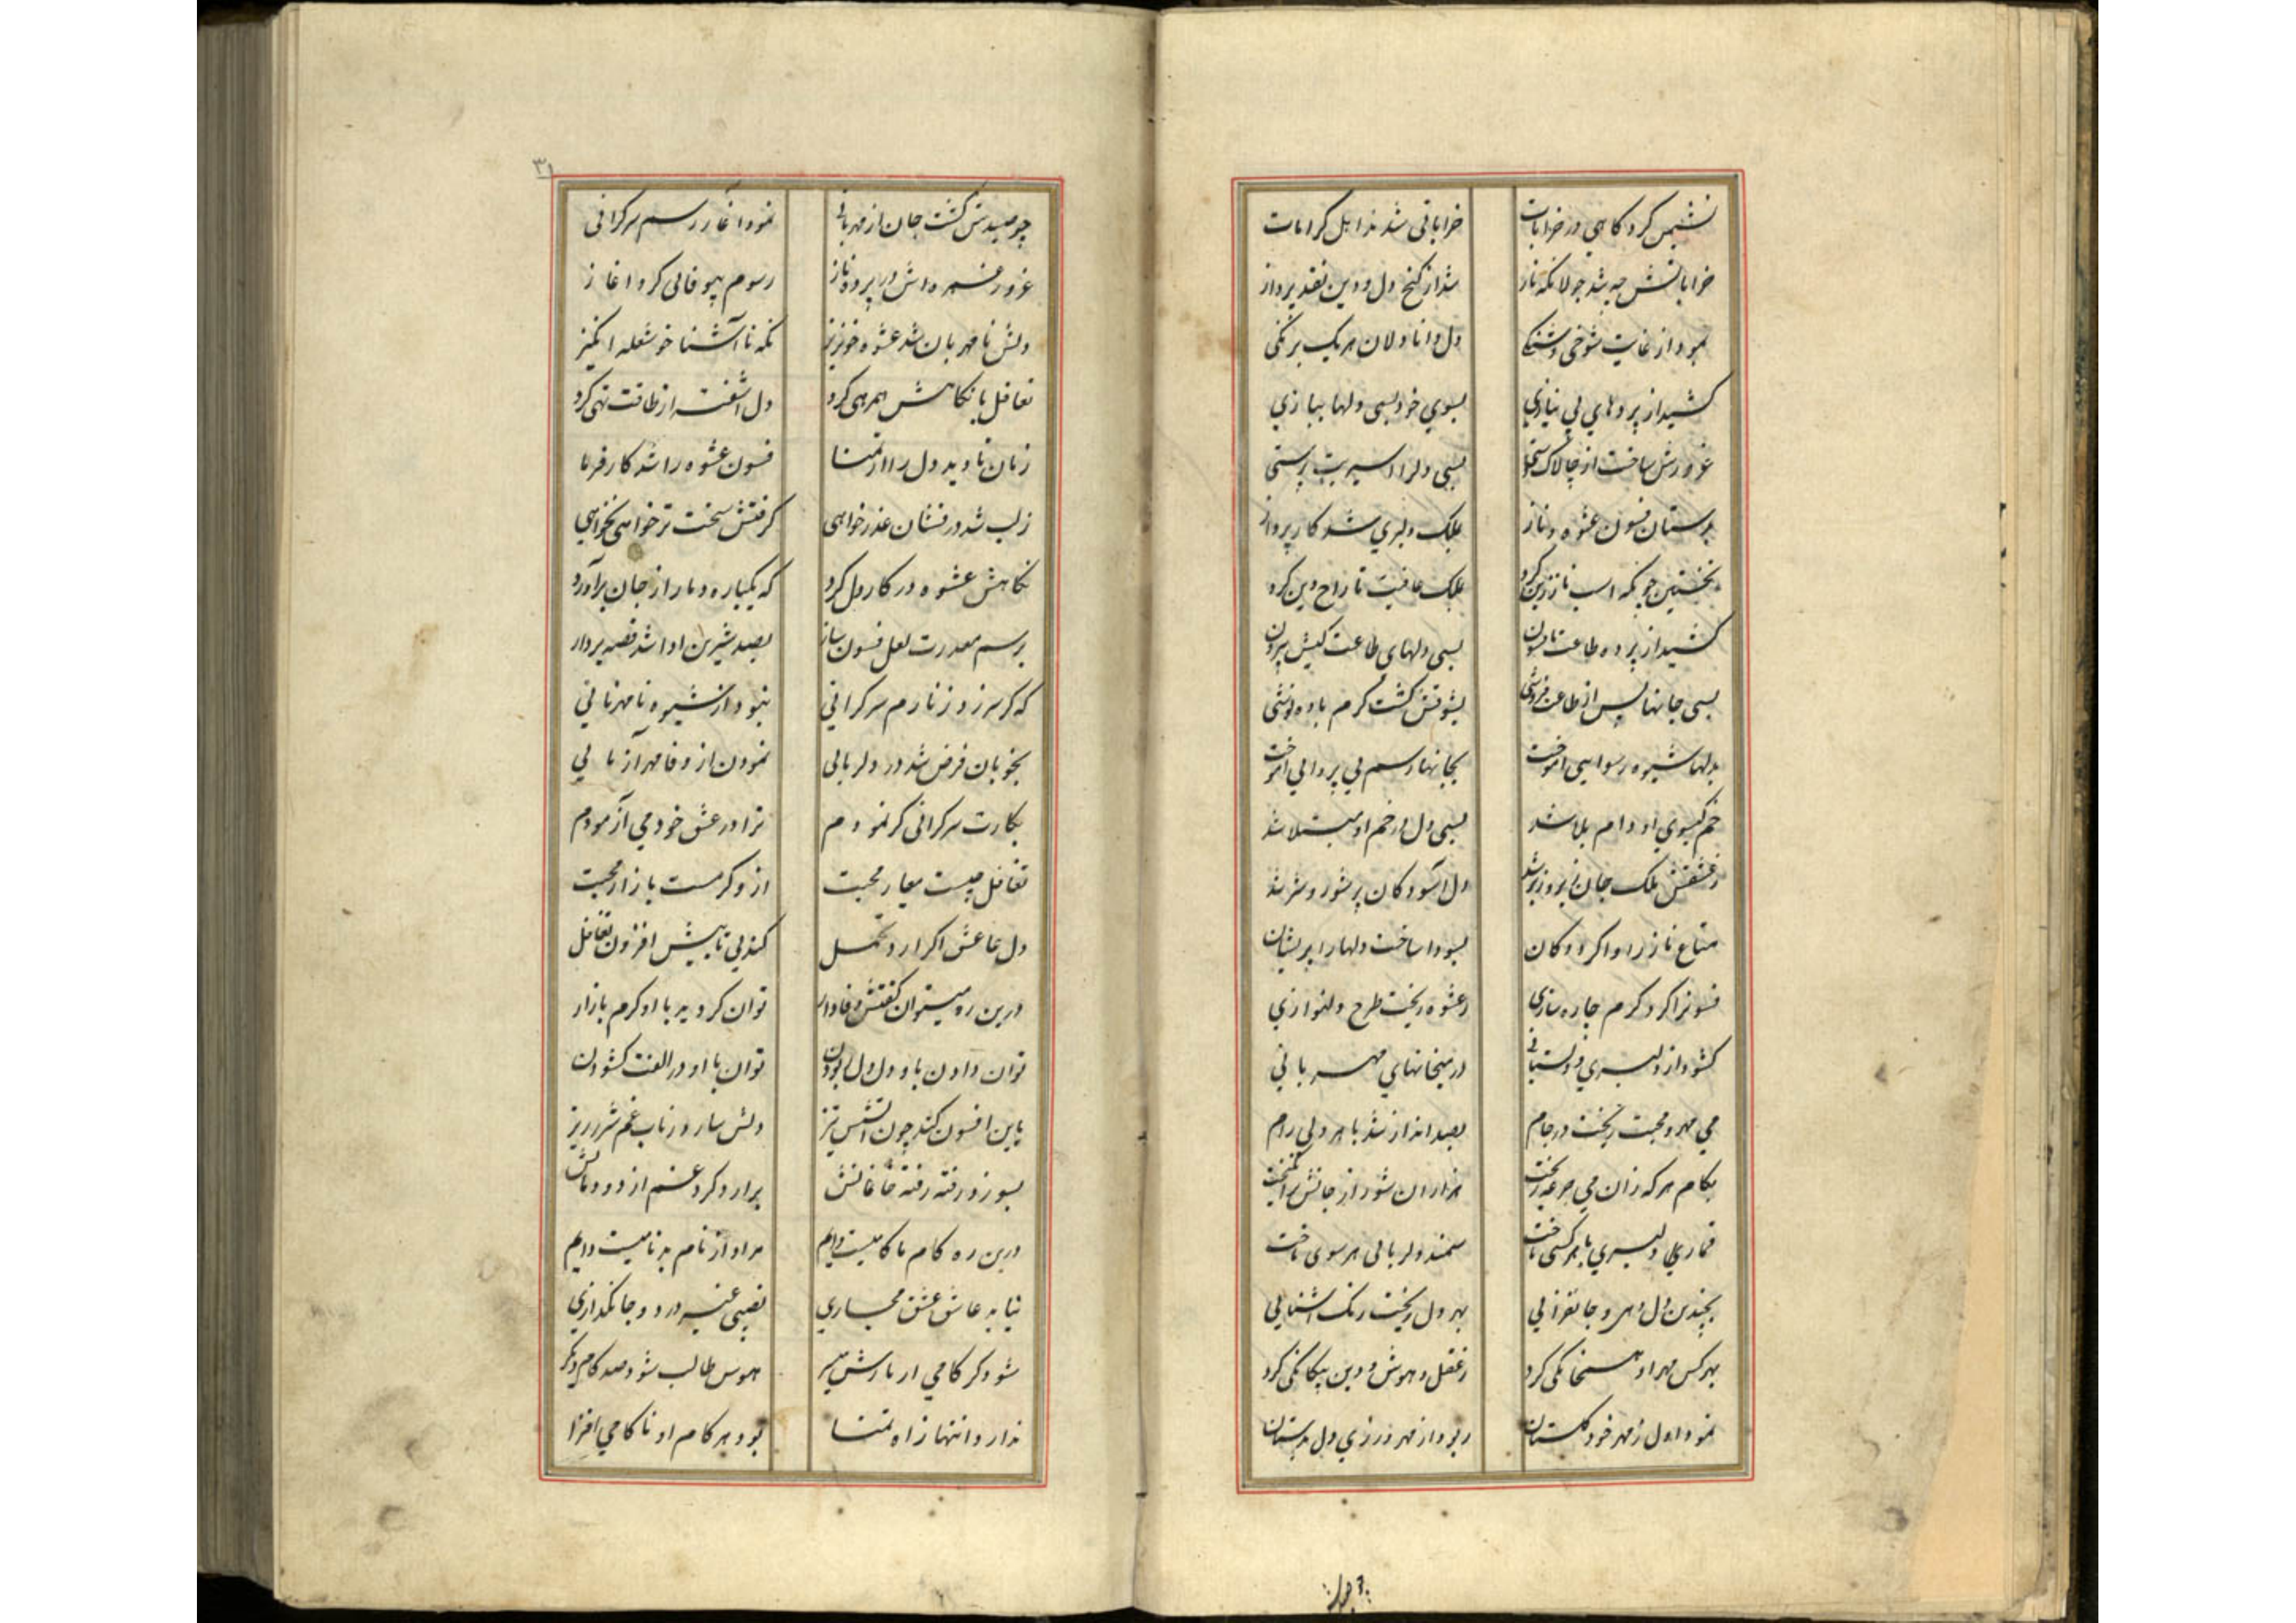 نشیمن کرد کاهی در خرابات خراباتی شدند اهل کرامات
خراباتش چه شد جولانکه ناز شد از کنج دل و دین نقد پرداز
نمود از غایت شوخی و شنکی دل دانا دلان هر یک برنکی
کشید از پردهای بی نیازی بسوی خود بسی دلها ببازی
غرورش ساخت از چالاک بسی دلرا اسیر بت پرستی
بدستان فسون عشوه و ناز بملک دلبری شد کارپرداز
نخستین چونکه اسب ناز زین کرد بملک عافیت تاراج دین کرد
کشید از پرده طاعت بسی دلهای طاعت کیش بیرون
بسی جانها پس از طاعت فروشی بشوقش کشت کرم باده نوشی
بدلها شیوه رسوایی آموخت بجانها رسم بی پروایی آموخت
خم کیسوی او دام بلا شد بسی دل در خم او مبتلا شد
ز عشقش ملک جان زیر و زبر شد دل آسودکان پر شور و شر شد
متاع ناز را وا کرد دکان بسودا ساخت دلها را پریشان
فسونرا کرد کرم چاره سازی ز عشوه ریخت طرح دلنوازی
کشود از دلبری و دلستانی در میخانهای مهربانی
می مهر و محبت ریخت در جام بصد انداز شد با هر دلی رام
بکام هر که زان می جرعه ریخت هزاران شور از جانش برانکیخت
قمار دلبری با هر کسی باخت سمند دلربائی هر سوی تاخت
بچندین دل دهی و جانفزایی بهر دل ریخت رنک آشنایی
بهر کس مهر او همخانکی کرد ز عقل و هوش و دین بیکانکی کرد
نمود اول ز مهر خود کلستان ربود از مهرورزی دل بدستان
چو صیدش کشت جان از مهربانی نمود آغاز رسم سرکرانی
غرور غمزه اش در پرده ناز رسوم بیوفائی کرد آغاز
دلش نامهربان شد عشوه خونریز نکه ناآشنا خو شعله انکیز
تغافل با نکاهش همرهی کرد دل آشفته از طاقت تهی کرد
زمان نادیده دل را از تمنا فسون عشوه را شد کارفرما
ز لب شد درفشان عذرخواهی کرفتش سخت تر خواهی نخواهی
نکاهش عشوه در کار دل کرد که یکباره دمار از جان برآورد
برسم معذرت لعل فسون ساز بصد شیرین ادا شد قصه پرداز
که کر سر زد ز نازم سرکرانی نبود از شیوه نامهربانی
بخوبان فرض شد در دلربائی نمودن از وفا مهر آزمایی
بکارت سرکرانی کر نمودم ترا در عشق خود می آزمودم
تغافل چیست معیار محبت از و کرمست بازار محبت
دل عاشق اکر آرد تحمل کند بی تابیش افزون تغافل
درین ره میتوان کفتش وفادار توان کردید با او کرم بازار
توان دادن باو دل دل ربودن توان با او در الفت کشودن
باین افسون کند چون آتشش تیز دلش سازد ز تاب غم شررریز
بسوزد رفته رفته خانمانش برآرد کرد غم از دودمانش
درین ره کام ناکامیست دایم مراد از نام بدنامیست دایم
نیابد عاشق عشق مجازی نصیبی غیر درد و جانکدازی
شود کر کامی از یارش میسر هوس طالب شود صد کام دیکر
ندارد انتها راه تمنا بود هر کام او ناکامی افزا
۳۱
چو صید